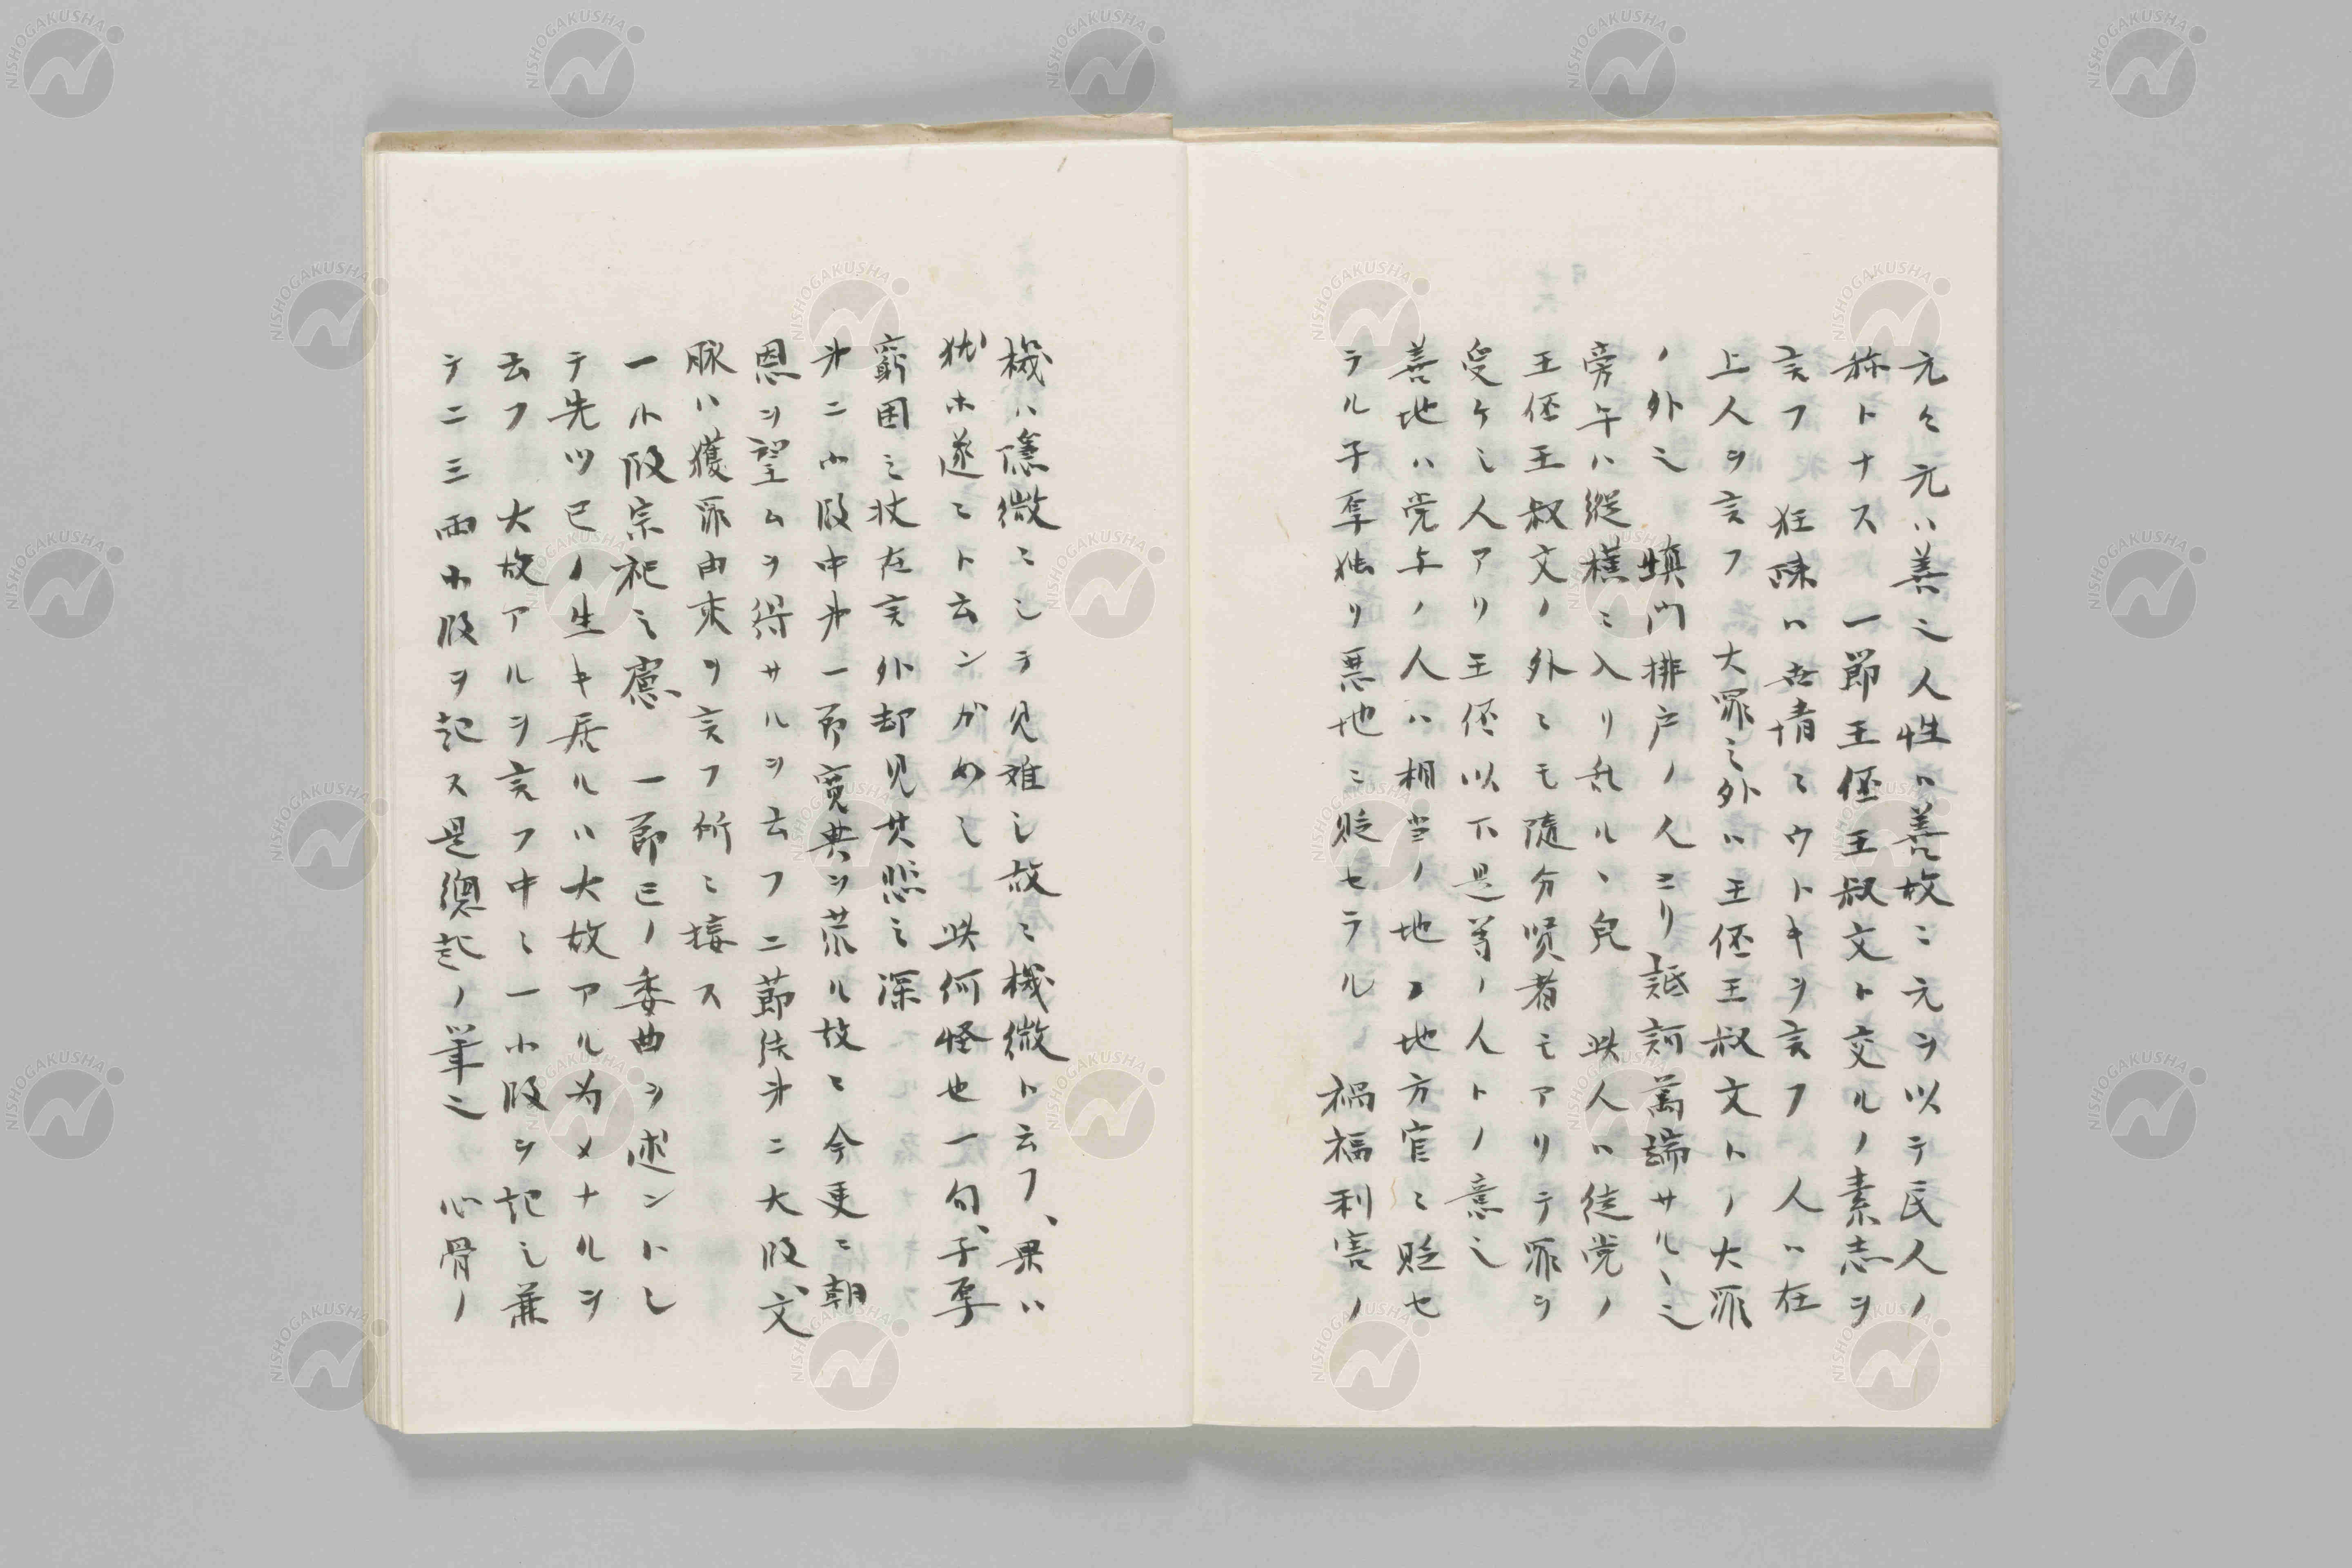 元々元ハ善之人性ハ善故ニ元ヲ以テ民人ノ
称トナス 一節王伾王叔文ト交ルノ素志ヲ
言フ 狂疎ハ世情ニウトキヲ言フ 人ハ在
上人ヲ言フ 大罪之外ハ王伾王叔文トノ大罪
ノ外之 塡門排戸ノ人ニリ詆訶萬端サルヽ之
旁午ハ縦横ニ入リ乱ルヽ皃 此人ハ徒党ノ
王伾王叔文ノ外ニモ随分賢者モアリテ罪ヲ
受ケシ人アリ王伾以下是等ノ人トノ意之
善地ハ党与ノ人ハ相当ノ地ノ地方官ニ貶セ
ラル子厚独リ悪地ニ貶セラル 禍福利害ノ
機ハ隠微ニシテ見難シ故ニ機微ト云フ、果ハ
猶ホ遂ニト云ンガめシ 此何怪也一句、子厚
窮困之状在言外却見其怨之深
第二小段中第一節寛典ヲ蒙ル故ニ今更ニ朝
恩ヲ望ムヲ得サルヲ云フ 二節従第二大段、文
脉ハ獲罪由来ヲ言フ所ニ接ス
一小段宗祀之慮、 一節己ノ委曲ヲ述ントシ
テ先ツ己ノ生キ居ルハ大故アル為メナルヲ
云フ 大故アルヲ言フ中ニ一小段ヲ記シ兼
テ二三両小段ヲ記ス是總起ノ筆之 心骨ノ